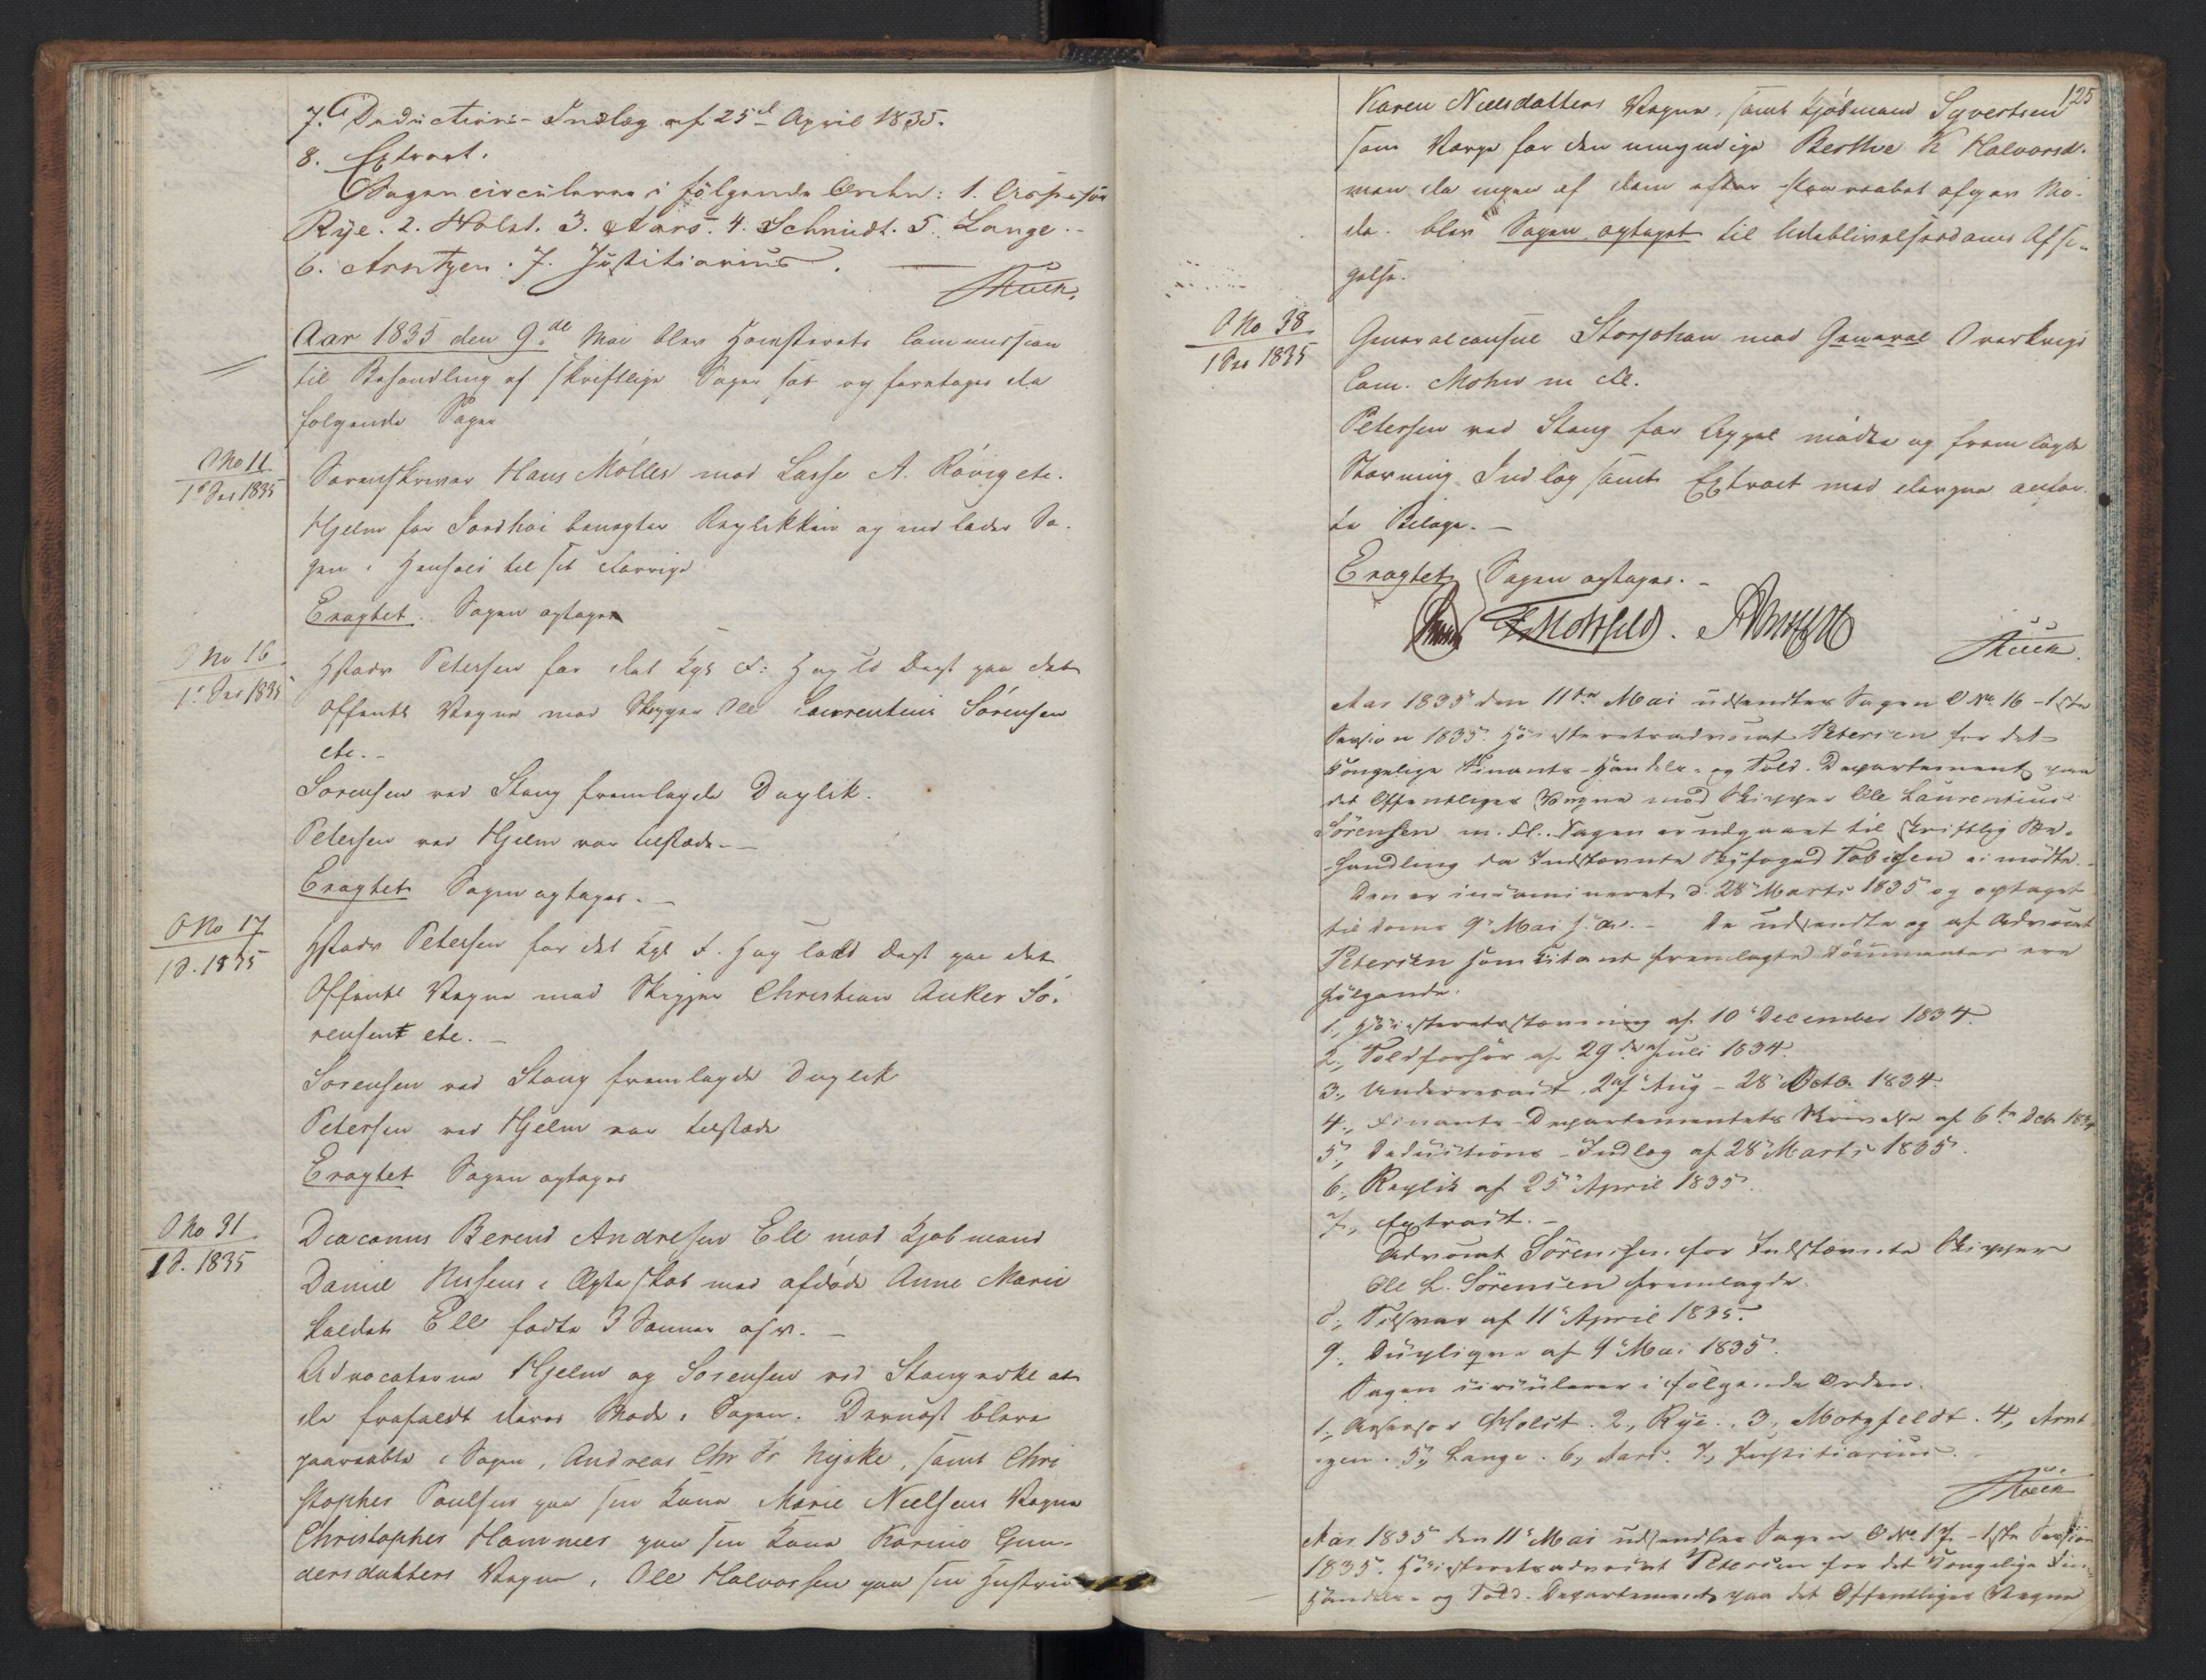 7. Deductions-Indlæg af 25de April 1835.
8. Extract.
Sagen circulerer i følgende Orden: 1. Assessor
Rye. 2. Holst. 3. Aars. 4. Schmidt. 5. Lange.
6. Arntzen. 7. Justitiarius.
Aar 1835 den 9de Mai blev Høiesterets Commission
til Behandling af skriftlige Sager sat og foretoges da
følgende Sager
O No 11
1ste Ses 1835
Sorenskriver Hans Møller mod Lasse A. Røvig etc.
Hjelm for Joedhøi benegter Replikken og indlader Sa-
gen i Henhold til sit forrige
Eragtet. Sagen optages
O No 16
1. Ses 1835
Hstadv Petersen for det Kgl F: H og T Dept paa det
Offentl Vegne mod Skipper Ole Laurentius Sørensen
etc. -
Sørensen ved Stang fremlagde Duplik.
Petersen ved Hjelm var tilstede. -
Eragtet Sagen optages. -
O No 17
1 S. 1835
Hstadv Petersen for det Kgl F. H og Told Dept paa det
Offentl Vegne mod Skipper Christian Anker Sø-
rensen etc. -
Sørensen ved Stang fremlagde Duplik
Petersen ved Hjelm var tilstede
Eragtet Sagen optages
O No 31
1 S. 1835
Diaconus Berend Andresen Ell mod Kjøbmand
Daniel Nissens i Ægteskab med afdøde Anne Marie
kaldet Ell fødte 3 Sønner osv. -
Advocaterne Hjelm og Sørensen ved Stang at
de frafaldt deres Møde i Sagen. Dernæst bleve
paaraabte i Sagen, Andreas Chr Fr Nyske, samt Chri
stopher Poulsen paa sin Kone Marie Nielsens Vegne
Christopher Hammer paa sin Kone Karine Gun-
dersdatters Vegne, Ole Halvorsen paa sin Hustru
125
Karen Nielsdatters Vegne, samt Kjøbmand Syvertsen
som Værge for den umyndige Berthe K Halvorsd.
men da ingen af dem efter Paaraabet afgav Mø-
de. blev Sagen optaget til Udeblivelsesdoms Afsi-
gelse.
O No 38
1 Ses 1835
Generalconsul Storjohan mod General Overkrigs
Com. Mohr m fl.
Petersen ved Stang for Appel mødte og fremlagde
Stævning Indlæg samt Extract med deri anfør-
te Bilage. -
Eragtet Sagen optages. -
Motzfeldt.
Aar 1835 den 11te Mai udsendtes Sagen O No 16 - 1ste
Session 1835. Høiesteretsadvocat Petersen for det
Kongelige Finants-Handels- og Told-Departement paa
det Offentliges Vegne mod Skipper Ole Laurentius
Sörensen m. fl. Sagen er udgaaet til skriftlig Be-
handling da Indstævnte Byfoged Tobiesen ei mødte. -
Den er incamineret d. 28 Marts 1835 og optaget
til Doms 9 Mai s. A. - De udsendte og af Advocat
Petersen som Citant fremlagte Documenter ere
følgende.
1., Høiesteretsstævning af 10 December 1834.
2., Toldforhør af 29de Juli 1834.
3., Underretsact 27 Aug - 28 Octbr 1834.
4., Finants-Departementets Skrivelse af 6te Decbr 1834
5., Deductions-Indlæg af 28 Marts 1835.
6., Replik af 25 April 1835.
7., Extract. -
Advocat Sörensen for Indstævnte Skipper
Ole L. Sörensen fremlagde.
8., Tilsvar af 11 April 1835.
9., Duplique af 9 Mai 1835.
Sagen circulerer i følgende Orden.
1., Assessor Holst. 2., Rye. 3., Motzfeldt. 4., Arnt-
zen. 5., Lange. 6., Aars. 7., Justitiarius.
Aar 1835 den 11 Mai udsendtes Sagen O No 17 - 1ste Session
1835. Høiesteretsadvocat Petersen for det Kongelige Fin-
Handels- og Told-Departement paa det Offentliges Vegne